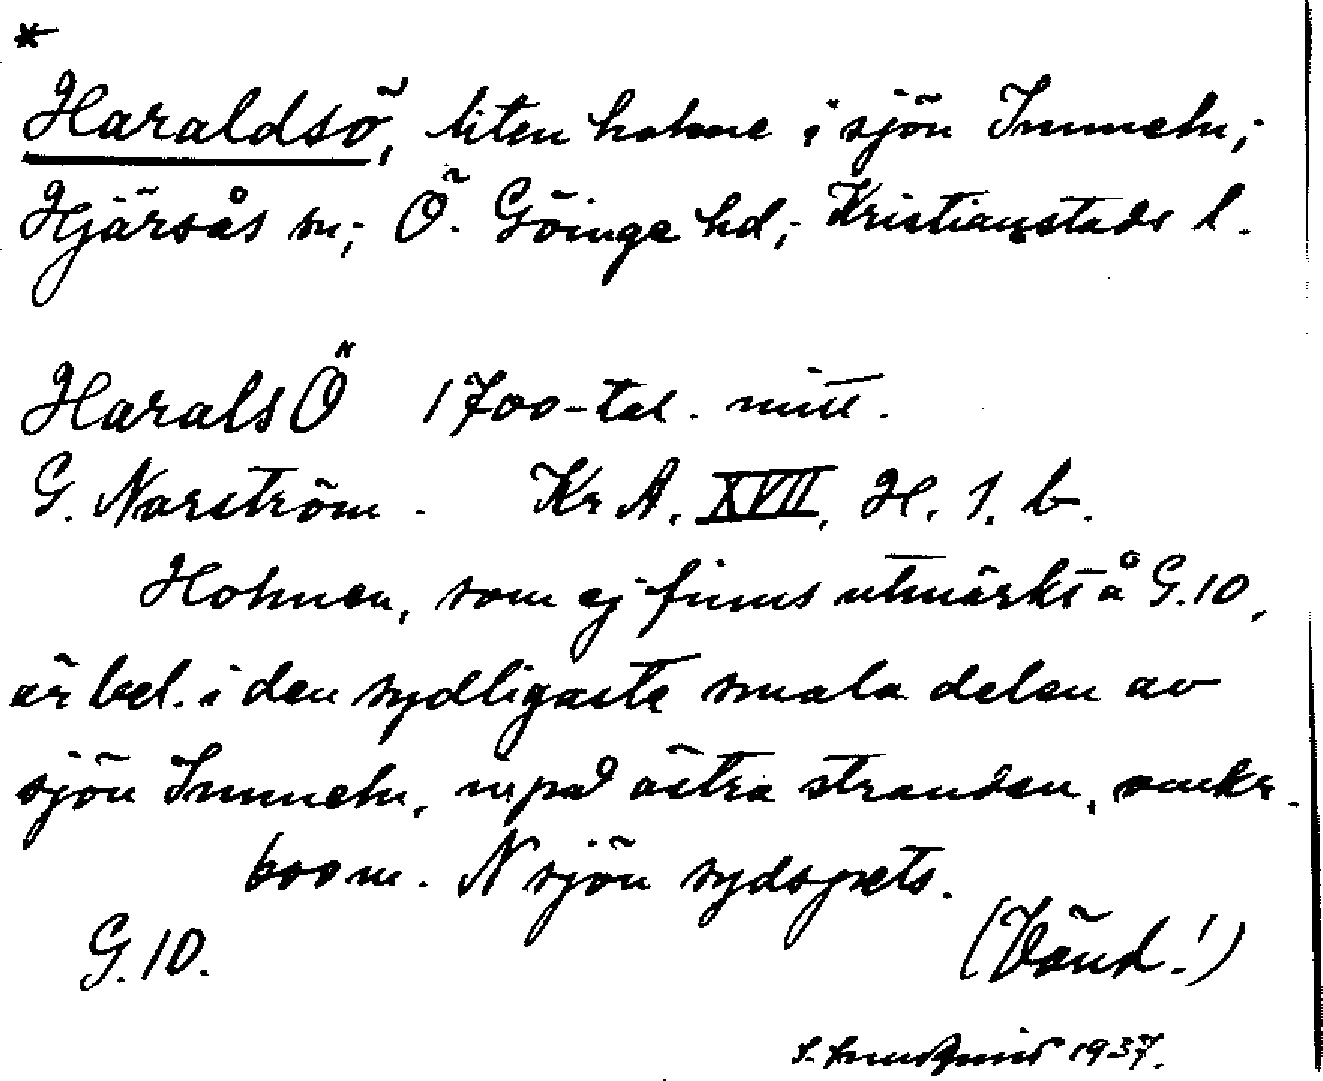 *
Haraldsö, liten holme i sjön Immeln;
Hjärsås sn; Ö. Göinge hd; Kristianstads l.
HaralsÖ 1700-tal. mitt.
G. Norström. KrA. XVII, H. 1. b.
Holmen, som ej finns utmärkt å G.10,
är bel. i den sydligaste smala delen av
sjön Immeln, på östra stranden,
600 m. N sjön sydspets.
G.10. (Vänd!)
1937.